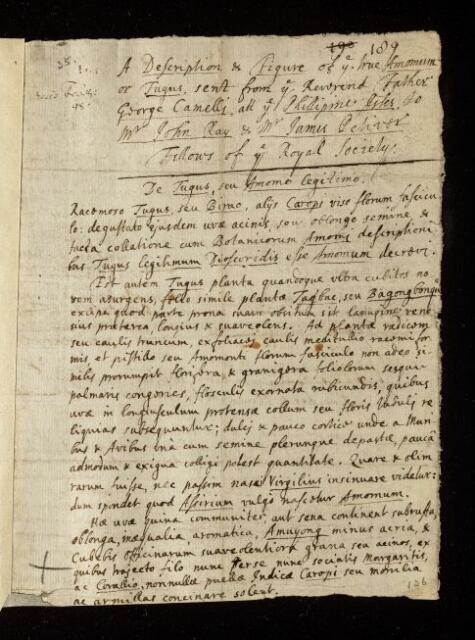 198 189
A Description & Figure of yᵉ true Amomum
or Tugus, sent from yᵉ Reverend Father
George Camelli, att yᵉ Philippine Isles to
Mʳ John Ray & Mʳ James Petiver
Fellows of yᵉ Royal Society.
De Tugus, seu Amomo legitimo.
Racemoso Tugus, seu Birao, alijs Caropi viso florum fascicu-
lo: degustato ejusdem uvæ acinis, seu oblongo semine, &
facta collatione cum Botanicorum Amomi descriptioni
bus Tugus legitimum Dioscoridis esse Amomum decrevi.
Est autem Tugus planta quandoque ultra cubitos no-
vem assurgens, folio simile plantæ Tagbac, seu Bagongbongin
excipe quod parte prona suavi obsitum sit lanugine, ven-
ius præterea, longius & suaveolens. Ad plantæ radicem
seu caulis truncum, exfoliaceo caulis meditullio racemifor
mis, et pistillo seu Amomonti florum fasciculo non adeo si-
milis prorumpit florifera, & granigera foliolorum sesqui-
palmaris congeries, flosculis exornata rubicundis, quibus
uvæ in longiusculum protensæ collum seu floris tubuli re
liquias subsequuntur; dulci & pauco cortice unde a Muri
bus & Avibus unà cum semine plerumque depastæ, paucâ
admodum & exigua colligi potest quantitate. Quare & olim
rarum fuisse, nec passim nasci Virgilius insinuare videtur:
dum spondet quod Assirium vulgo nascetur Amomum.
Hæ uvæ quina communiter, aut sena continent subruffa,
oblonga, inæqualia aromatica, Amuyong minus acria, &
Cubebis Officinarum suaveolentiora grana seu acinos, ex
quibus trajecto filo nunc per se nunc sociatis Margaritis,
ac Corallio, nonnullæ puellæ Indicæ Caropi seu monilia
ac armillas concinare solent.
126